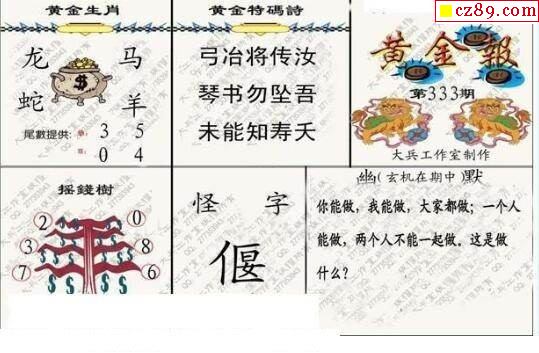 cz89.com
黄金生肖
龙 马
蛇 羊
尾數提供: 單: 3 5
雙: 0 4
黄金特碼詩
弓冶将传汝
琴书勿坠吾
未能知寿夭
黄金報
第333期
大兵工作室制作
摇錢樹
2 0
3 8
7 6
怪 字
偃
幽(玄机在期中)默
你能做，我能做，大家都做；一个人
能做，两个人不能一起做。这是做
什么？